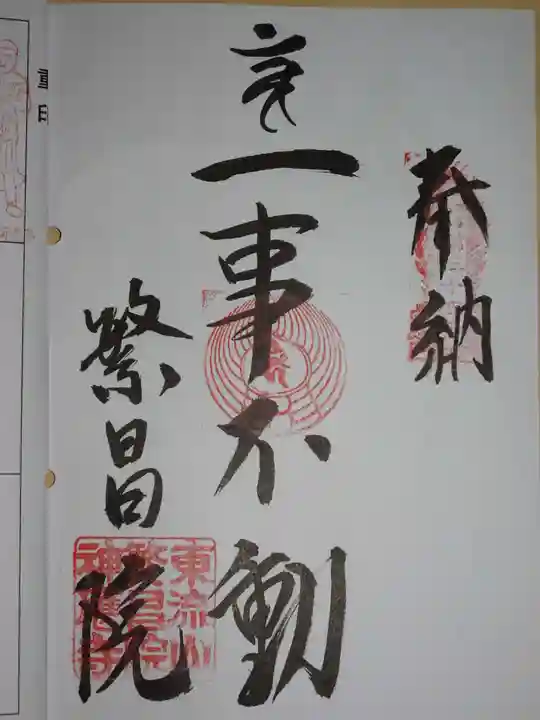 奉納
一事不動
繁昌院
東流山
繁昌院
神應寺